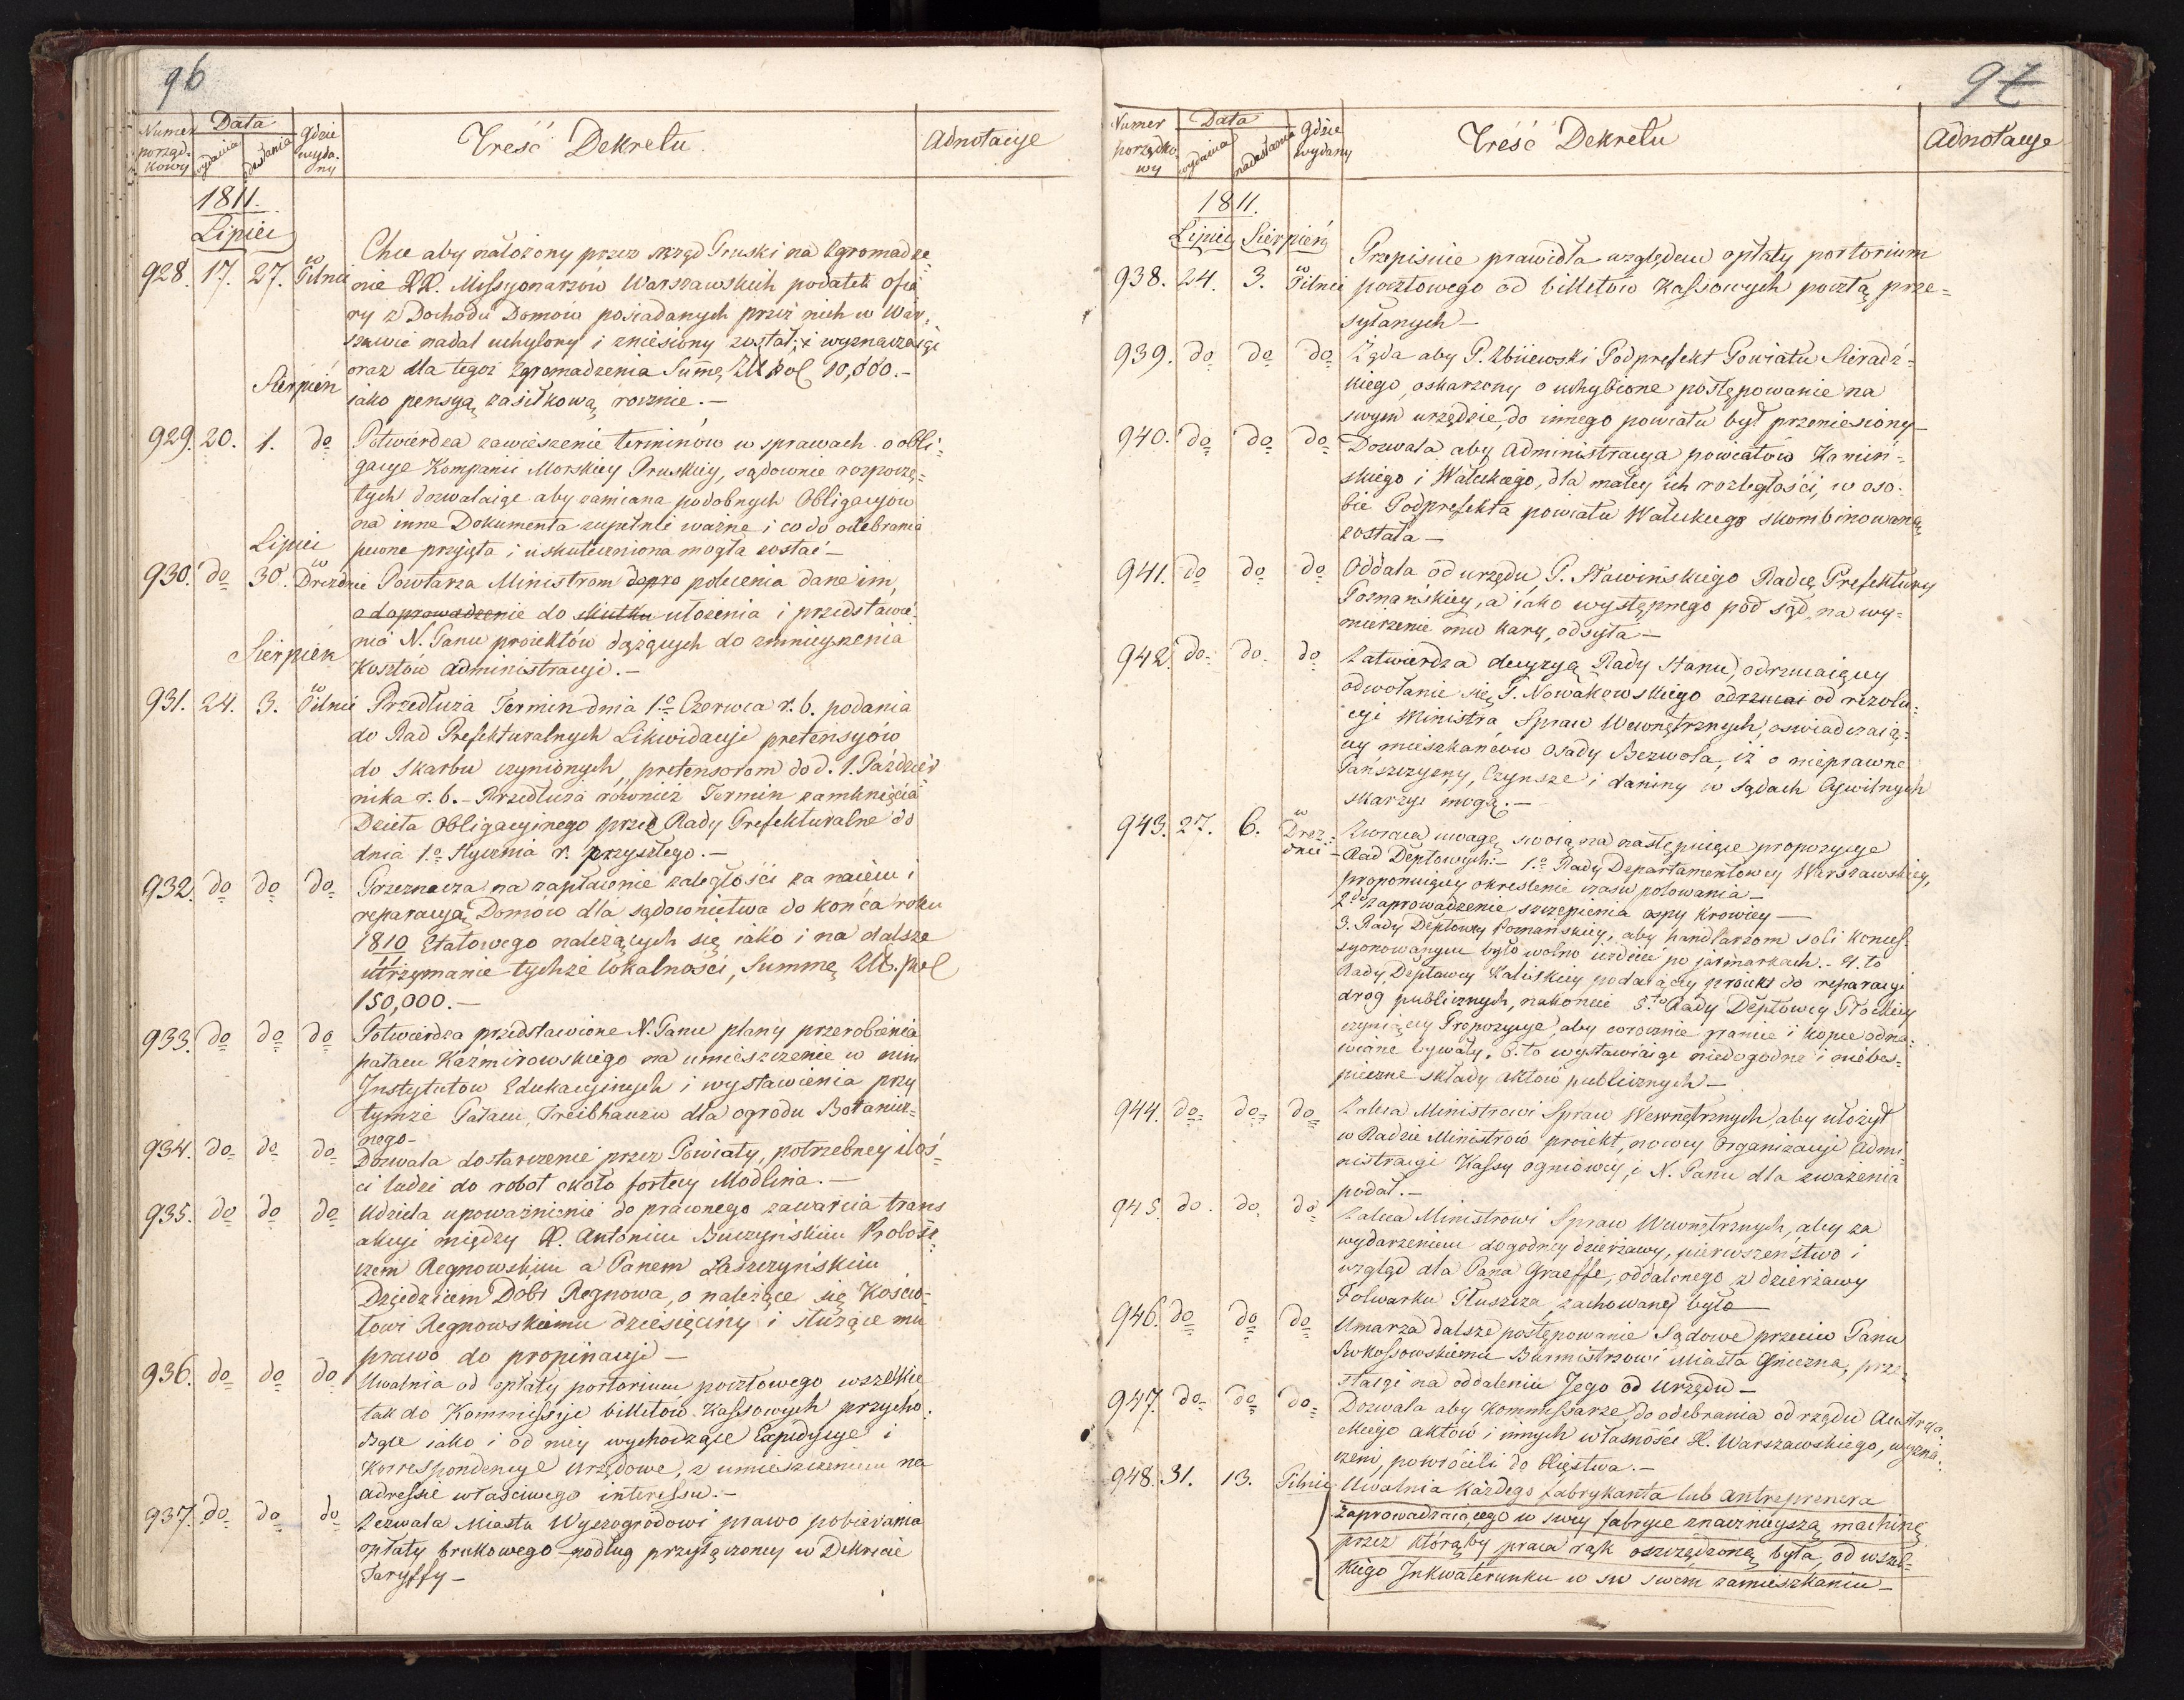 96
Numer porząd- kowy | Data wydania | nadesłania | gdzie wyda- ny | Treść Dekretu | Adnotacye
1811.
Lipiec
Chce aby nałożony przez rząd Pruski na Zgromadze-
928. 17. 27. w Pilnic nie XX. Missyonarzów Warszawskich podatek ofia-
ry z Dochodu Domow posiadanych przez nich w War-
szawie nadal uchylony i zniesiony został; i wyznaczaiąc
oraz dla tegoż Zgromadzenia Summę Zł. pol 10,000.-
Sierpień iako pensyą zasiłkową rocznie.-
929. 20. 1. do Potwierdza zawieszenie terminów w sprawach o obli-
gacye Kompanii Morskiey Pruskiey, sądownie rozpoczę-
tych dozwalaiąc aby zamiana podobnych Obligacyow
na inne Dokumenta zupełnie ważne i co do odebrania
Lipiec pewne przyjęta i uskuteczniona mogła zostać-
930. do 30. w Dreźdnie Powtarza Ministrom dopro polecenia dane im,
o doprowadzenie do skutku ułożenia i przedstawie-
nie N. Panu proiektów dążących do zmnieyszenia
Sierpień Kosztów administracyi.-
931. 24. 3. w Pilnic Przedłuża Termin dnia 1.o Czerwca r. b. podania
do Rad Prefekturalnych Likwidacyi pretensyów
do Skarbu czynionych, pretensorom do d. 1. Paździer
nika r. b.- Przedłuża również Termin zamknięcia
Dzieła Obligacyinego przez Rady Prefekturalne do
dnia 1.o Stycznia r. przyszłego.-
932. do do do Przeznacza na zapłacenie zaległości za naięcie i
reparacyą Domów dla sądownictwa do końca roku
1810/11 Etatowego należących się iako i na dalsze
utrzymanie tychże lokalności, Summę Zło. pol
150,000.-
933. do do do Potwierdza przedstawione N. Panu plany przerobienia
pałacu Kaźmirowskiego na umieszczenie w nim
Instytutow Edukacyinych i wystawienia przy
tymże Pałacu, Treibhauzu dla ogrodu Botanicz-
nego-
934. do do do Dozwala dostarczenie przez Powiaty, potrzebney iloś-
ci ludzi do robot około fortecy Modlina.-
935. do do do Udziela upoważnienie do prawnego zawarcia trans
akcyi między X. Antonim Buczyńskim Probosz-
czem Regnowskim a Panem Łaszczyńskim
Dziedzicem Dóbr Regnowa, o należące się Kościo-
łowi Regnowskiemu dziesięciny i służące mu
prawo do propinacyi-
936. do do do Uwalnia od opłaty portorium pocztowego wszelkie
tak do Kommissyi billetow Kassowych przycho-
dzące iako i od niey wychodzące Expedycye i
Korrespondencye Urzędowe, z umieszczeniem na
adressie właściwego interessu.-
937. do do do Zezwala Miastu Wyszogrodowi prawo pobierania
opłaty brukowego podług przyłączoney w Dekrecie
Taryffy-
97
Numer porządko- wy | Data wydania | nadesłania | Gdzie wydany | Treść Dekretu | Adnotacye
1811.
Lipiec Sierpień
Przepisuie prawidła względem opłaty portorium
938. 24. 3. w Pilnic pocztowego od billetów Kassowych pocztą prze-
syłanych-
939. do do do Żąda aby P. Zbiiewski Podprefekt Powiatu Sieradz-
kiego, oskarzony o uchybione postępowanie na
swym urzędzie, do innego powiatu był przeniesiony-
940. do do do Dozwala aby Administracya powiatów Kamin-
skiego i Wałeckiego, dla małey ich rozległości, w oso-
bie Podprefekta powiatu Wałeckiego skombinowaną
została-
941. do do do Oddala od urzędu P. Sławińskiego Radcę Prefektury
Poznańskiey, a iako występnego pod sąd, na wy-
mierzenie mu kary, odsyła-
942. do do do Zatwierdza decyzyą Rady Stanu, odrzucaiącey
odwołanie się P. Nowakowskiego odrzucai od rezolu-
cyi Ministra Spraw Wewnętrznych, oswiadczaią-
cey mieszkańcow osady Bezwola, iż o nieprawne
Pańszczyzny, Czynsze i daniny w sądach Cywilnych
skarżyć mogą.-
943. 27. 6. w Drez- dnie Zwraca uwagę swoią na następuiące propozycye
Rad Deptowych:- 1.o Rady Departamentowey Warszawskiey,
proponuiącey określenie czasu polowania-
2.do zaprowadzenie szczepienia ospy Krowiey-
3. Rady Deptowey Poznańskiey, aby handlarzom soli konces-
syonowanym było wolno ieździć po jarmarkach.- 4.to
Rady Deptowey Kaliskiey podaiącey proiekt do reparacyi
dróg publicznych, nakoniec 5.to Rady Deptowey Płockiey
czyniącey Propozycye, aby corocznie granice i kopce odna-
wiane bywały. 6.to wystawiaiąc niedogodne i niebes-
pieczne składy aktów publicznych-
944. do do do Zaleca Ministrowi Spraw Wewnętrznych, aby ułożył
w Radzie Ministrów proiekt, nowey Organizacyi Admi-
nistracyi Kassy ogniowey, i N. Panu dla zważenia
podał.-
945. do do do Zaleca Ministrowi Spraw Wewnętrznych, aby za
wydarzeniem dogodney dzierżawy, pierwszeństwo i
wzgląd dla Pana Graeffe, oddalonego z dzierżawy
Folwarku Głuszcza zachowaney było-
946. do do do Umarza dalsze postępowanie Sądowe przeciw Panu
Burmistrzowi Miasta Gniezna, prze-
staiąc na oddaleniu Jego od Urzędu-
947. do do do Dozwala aby Kommissarze, do odebrania od rządu Austrya-
ckiego aktów i innych własności X. Warszawskiego, wyzna-
czeni, powrócili do Xięstwa.-
948. 31. 13. Pilnic Uwalnia każdego fabrykanta lub antreprenera
zaprowadzaiącego w swey fabryce znacznieyszą machinę
przez którąby praca rąk oszczędzoną była, od wszel-
kiego Inkwaterunku w sw swem zamieszkaniu-